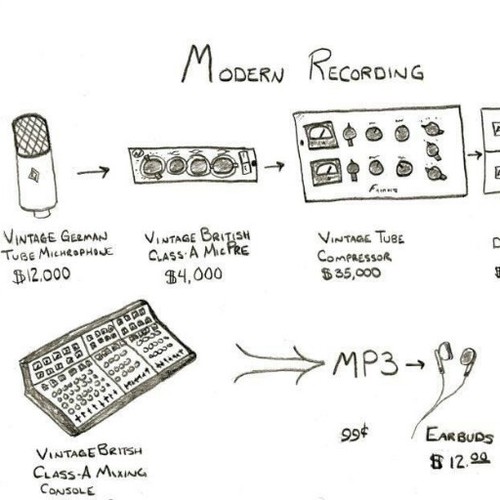 MODERN RECORDING
VINTAGE GERMAN
TUBE MICHROPHONE
$12.000
VINTAGE BRITISH
CLASS-A MIC PRE
$4,000
VINTAGE TUBE
COMPRESSOR
$35,000
D
$
VINTAGE BRITSH
CLASS-A MIXING
CONSOLE
MP3
99¢
EARBUDS
$12.00